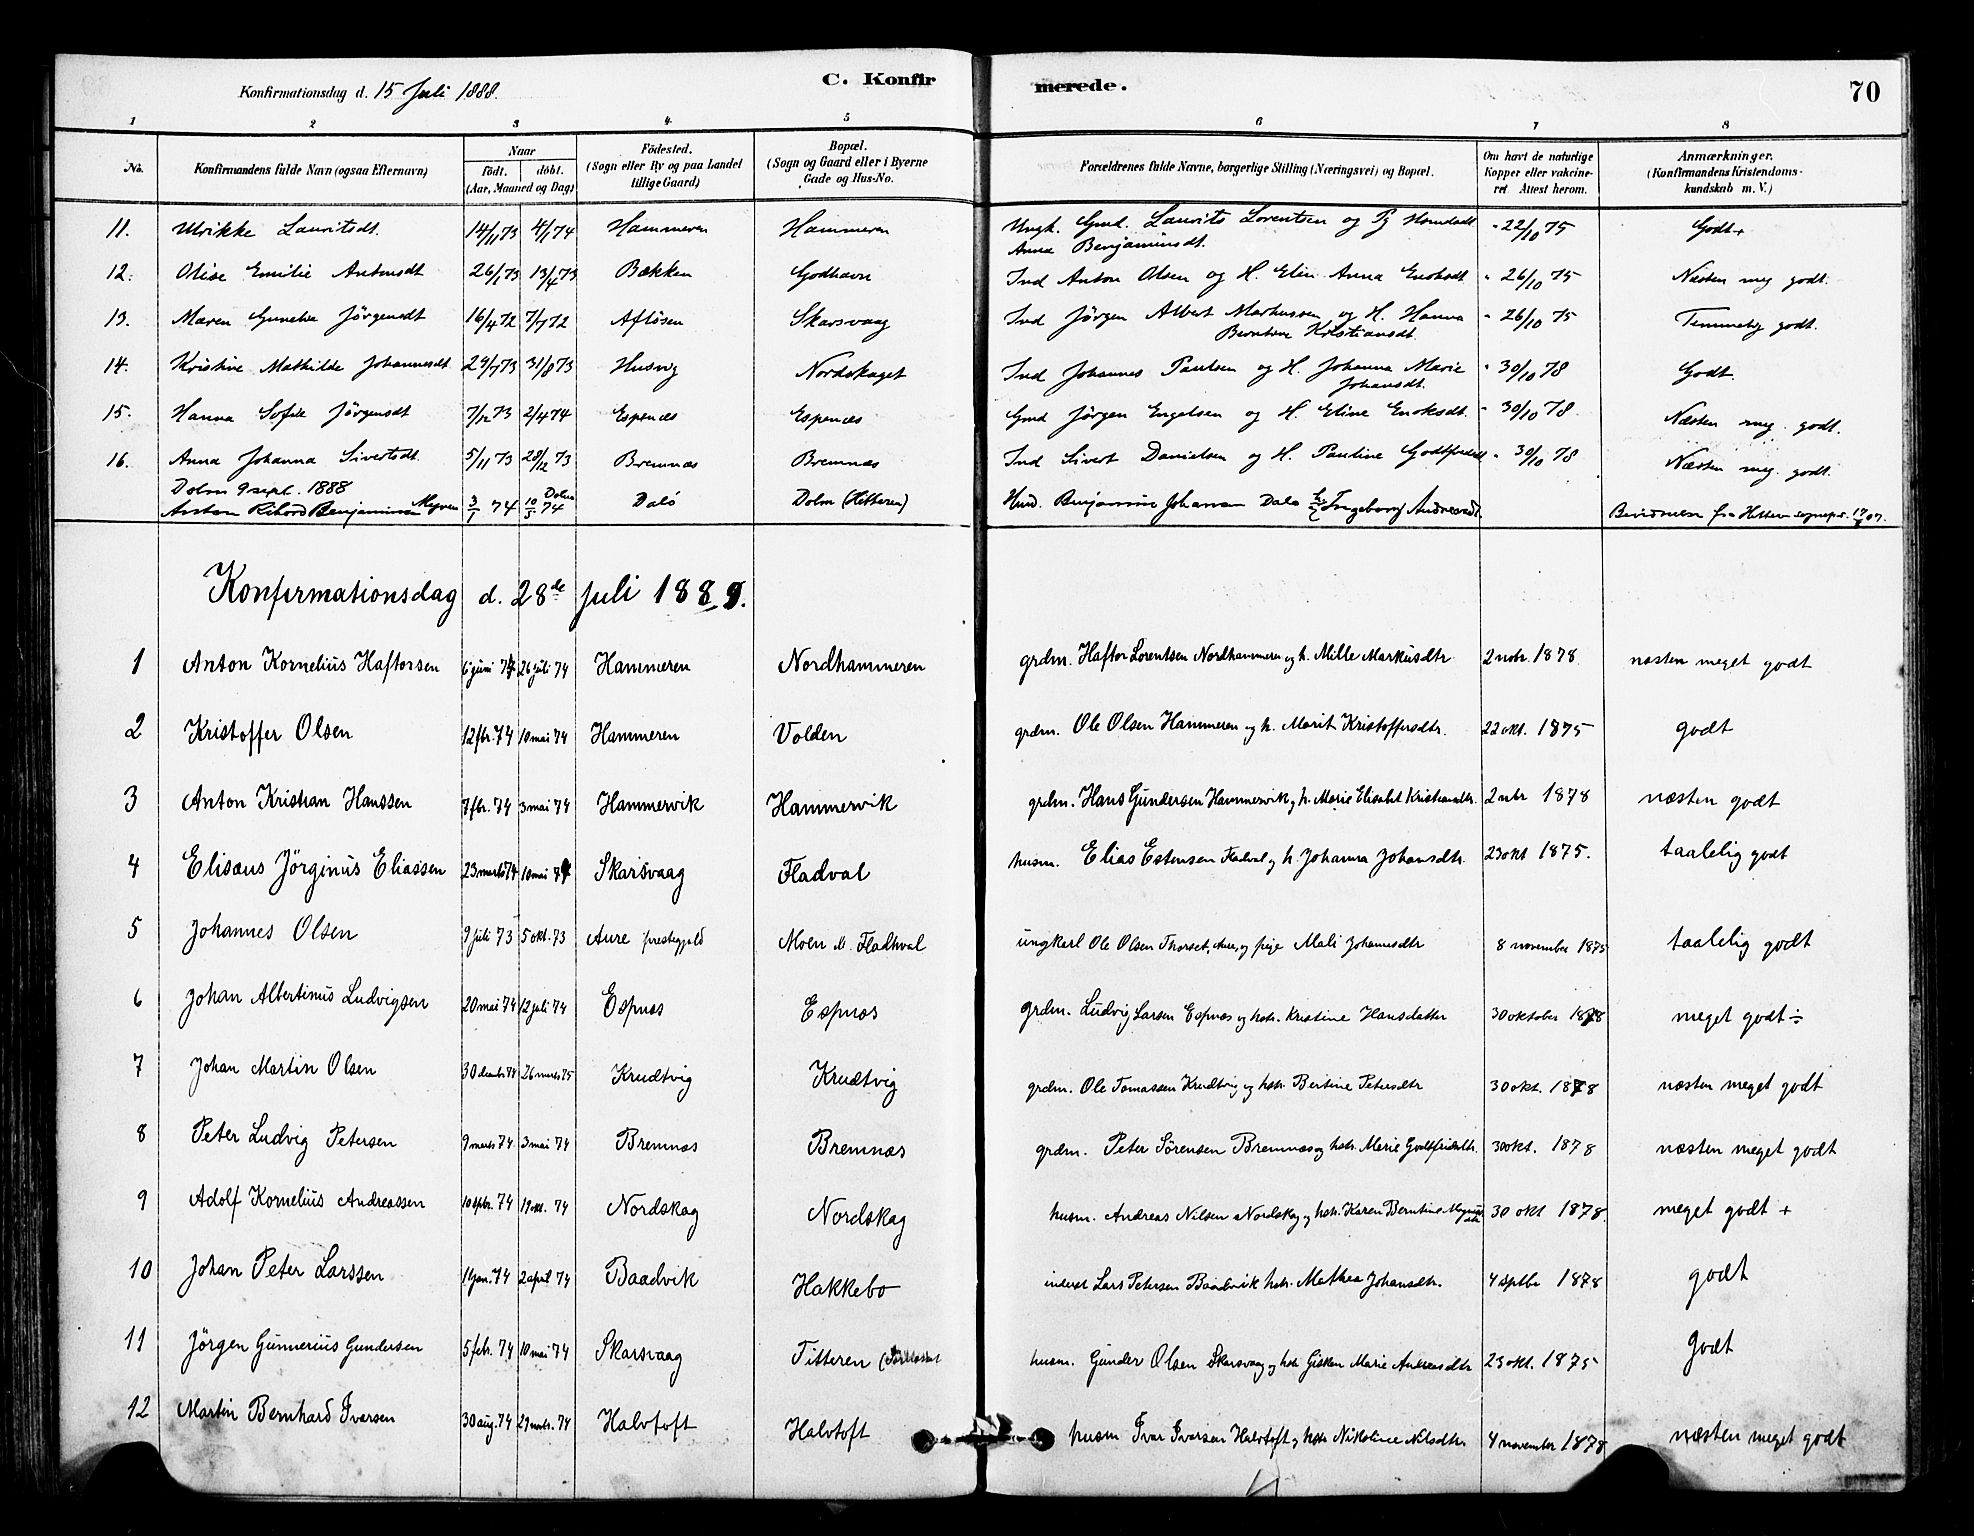 Konfirmationsdag d. 15 Juli 1888.
C. Konfirmerede.
70
1 2 3 4 5 6 7 8
No. Konfirmandens fulde Navn (ogsaa Efternavn) Naar født. døbt. (Aar, Maaned og Dag) Fødested. (Sogn eller By og paa Landet tillige Gaard) Bopæl. (Sogn og Gaard eller i Byerne Gade og Hus-No. Forældrenes fulde Navne, borgerlige Stilling (Næringsvei) og Bopæl. Om havt de naturlige Kopper eller vakcineret Attest herom. Anmærkninger. (Konfirmandens Kristendomskundskab m. V.)
11. Ulrikke Lauritsdt. 14/11 73 4/1 74 Hammeren Hammeren Ungk. Gmd. Laurits Lorentsen og Pg Anna Benjaminsdt. 22/10 75 Godt+
12. Olise Emilie Antonsdt 26/1 73 13/4 73 Bækken Godhavn Ind Anton Olsen og H. Elin Anna Enoksdt 26/10 75 Næsten meg godt.
13. Maren Jørgensdt 16/4 72 7/7 72 Afløsen Skarsvaag Ind Jørgen Albert Markussen og H. Hanna Berntine Kristiansdt. 26/10 75 Temmelig godt.
14. Kristine Mathilde Johannesdt 29/7 73 31/8 73 Husvig Nordskaget Ind Johannes Paulsen og H. Johanna Marie Johansdt. 30/10 78 Godt.
15. Hanna Sofie Jørgensdt 7/12 73 2/4 74 Espenæs Espenæs Gmd Jørgen Engelsen og H. Eline Enoksdt. 30/10 78 Næsten meg. godt.
16. Anna Johanna Sivertsdt. 5/11 73 28/12 73 Bremnæs Bremnæs Ind Sivert Danielsen og H. Pauline Godtfredsdt 30/10 78 Næsten meg. godt.
Dolm 9 sept. 1888
Anton Rikard Benjaminsen Meyven 3/1 74 10/5 74 Dolm Dalø Dolm (Hitteren) Husd. Benjamin Johansen Dalø Ingeborg Andreasdt. fra Hitteren sognepr. 17/07.
Konfirmationsdag d. 28de juli 1889.
1 Anton Kornelius Haftorsen 6 juni 74 26 juli 74 Hammeren Nordhammeren grdm. Haftor Lorentsen Nordhammeren og h. Mille Markusdtr 2 nobr. 1878. næsten meget godt
2 Kristoffer Olsen 12 fbr. 74 10 mai 74 Hammeren Volden grdm. Ole Olsen Hammeren og h. Marit Kristoffersdtr. 22 okt. 1875 godt
3 Anton Kristian Hanssen 7 fbr. 74 3 mai 74 Hammervik Hammervik grdm. Hans Gundersen Hammervik og h. Marie Elisabet Kristiansdtr. 2 nbr 1878 næsten godt
4 Elisæus Jörginus Eliassen 23 marts 74 10 mai 74 Skarsvaag Fladval husm. Elias Estensen Fladval og h. Johanna Johansdtr. 23 okt 1875. taalelig godt
5 Johannes Olsen 9 juli 73 5 okt. 73 Aure prestegjeld Moen u. Fladhval ungkarl Ole Olsen Thorset, Aure, og pige Mali Johannesdtr 8 november 1875 taalelig godt
6 Johan Albertinus Ludvigsen 20 mai 74 12 juli 74 Espnæs Espnæs grdm. Ludvig Larsen Espnæs og hstr. Kristine Hansdatter 30 oktober 1878 meget godt ÷
7 Johan Martin Olsen 30 decmbr 74 26 marts 75 Krudtvig Krudtvig grdm. Ole Tomassen Krudtvig og hstr. Bertine Petersdtr 30 okt. 1878 næsten meget godt
8 Peter Ludvig Petersen 9 marts 74 3 mai 74 Bremnæs Bremnæs grdm. Peter Sörensen Bremnæs og hstr. Marie Godtfridsdtr. 30 okt. 1878 næsten meget godt
9 Adolf Kornelius Andreassen 10 spbr. 74 19 okt. 74 Nordskag Nordskag husm. Andreas Nilsen Nordskag og hstr. Karen Berntine 30 okt 1878. meget godt +
10 Johan Peter Larssen 1 jan. 74 2 april 74 Baadvik Hakkebo inderst Lars Petersen Baadvik hstr. Mathea Johansdtr. 4 septbr 1878 godt
11 Jörgen Gunnerius Gundersen 5 febr. 74 10 mai 74 Skarsvaag Titteren husm. Gunder Olsen Skarsvaag og hstr Gisken Marie Andreasdtr 23 okt. 1875 godt
12 Martin Bernhard Ivarsen 30 aug. 74 29 novbr. 74 Halvtoft Halvtoft husm Ivar Ivarsen Halvtoft og hstr Nikoline Nilsdtr 4 november 1878 næsten meget godt